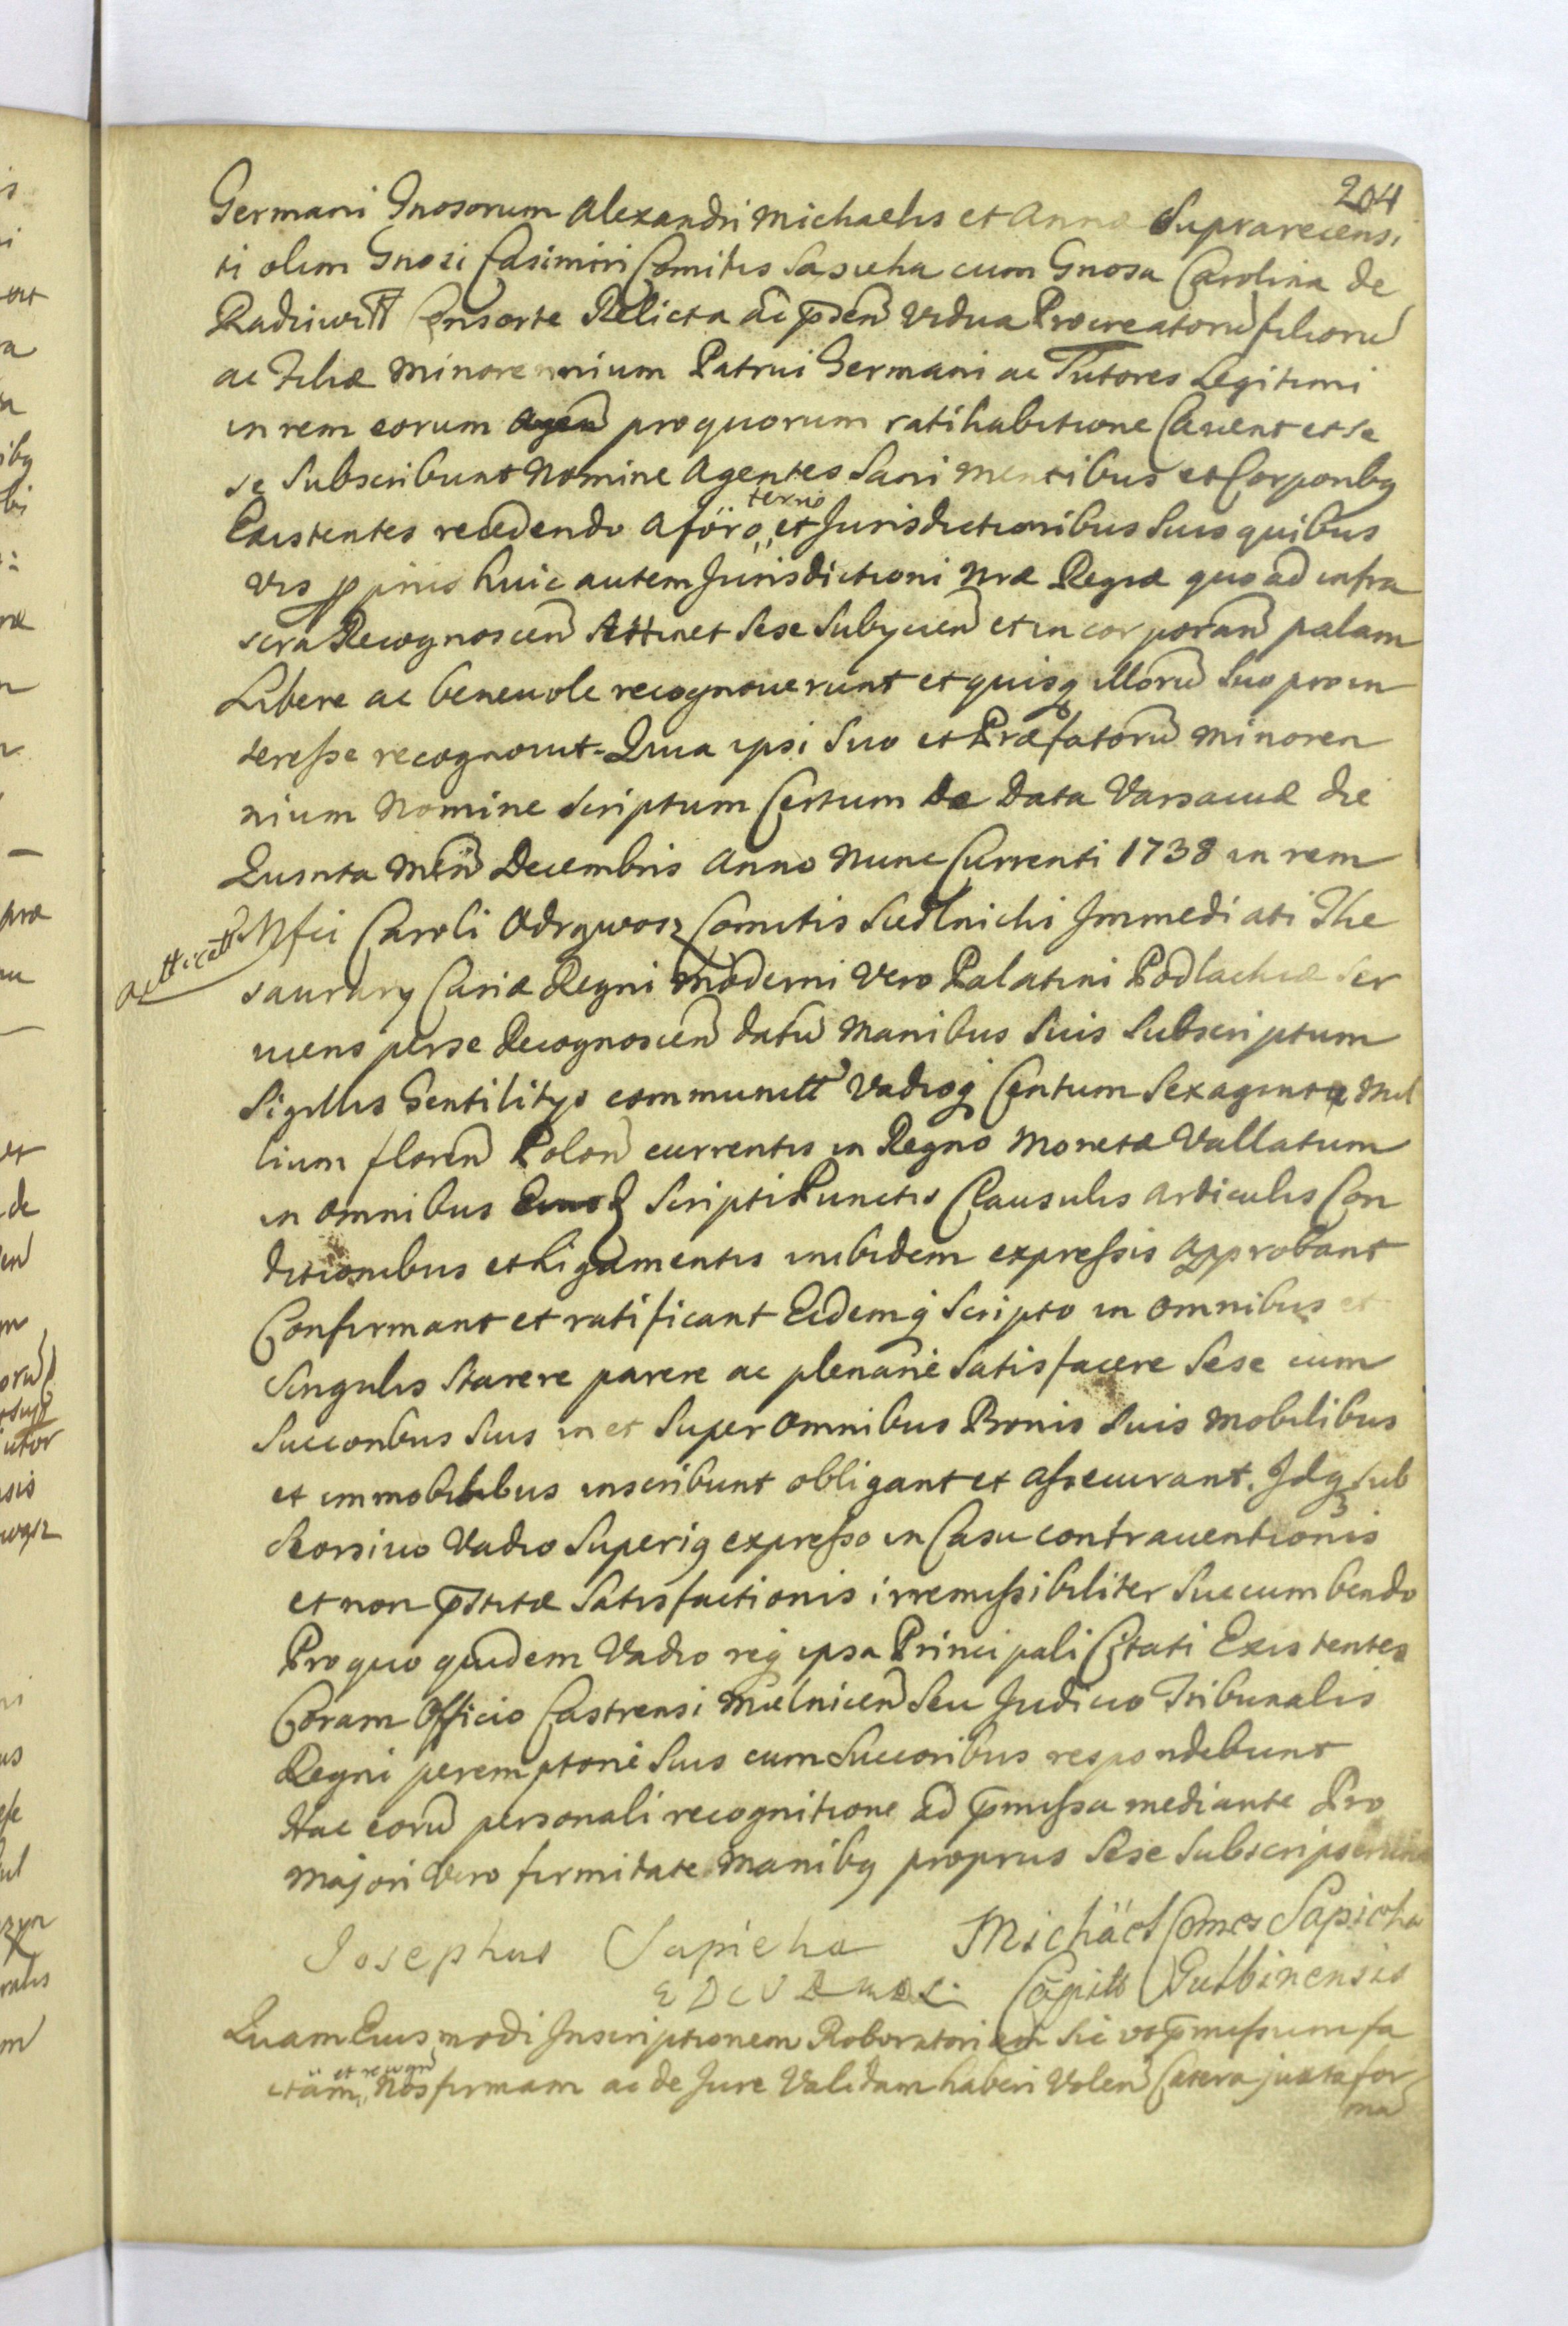 204
Germani Gnosorum Alexandri Michaelis et Anna Suprarecensi
ti olim Gnosi Casimiri Comitis Sapieha cum Gnosa Carolina de
Radziwiłł Consorte Relicta ac p̄sen Vidua Procreatoru filioru
ac Filiæ Minorennium Patrui Germani ac Tutores Legitimi
in rem eorum pro quorum ratihabitione Cavent et se
se Subscribunt Nomine Agentes Sani Mentibus et Corporibq
Existentes recedendo a föro terris et Jurisdictionibus Suis quibus
vis ppriis huic autem Jurisdictioni Nræ Regiæ quo ad infra
scra Recognoscen Attinet Sese Subycien et incorporan palam
Libere ac benevole recognoverunt et quisq illoru Suo pro in
teresse recognovit. Quia ipsi Suo et Præfatoru Minoren
nium Nomine Scriptum Certum De Data Varsaviæ die
Quinta Men Decembris Anno Nunc Currenti 1738 in rem
Mfici Caroli Odrywosz Comitis Siedlnicki Immediati The
saurary Curiæ Regni Moderni Vero Palatini Podlachiæ Ser
viens per se Recognoscen datu Manibus Suis Subscriptum
Sigillis Gentilitys communitt Vadioq Centum Sexaginta Mil
lium floren Polon currentis in Regno Monetæ Vallatum
in omnibus Scripti Punctis Clausulis Articulis Con
ditionibus et Ligamentis inibidem expressis Approbant
Confirmant et ratificant Eidemq Scripto in omnibus et
Singulis Starere parere ac plenarie Satisfacere Sese cum
Succoribus Suis in et Super omnibus Bonis Suis Mobilibus
et immobilibus inscribunt obligant et assecurant. Idq Sub
Seorsivo Vadio Superiq expresso in Casu contraventionis
et non p̄stitæ Satisfactionis irremissibiliter Succumbendo
Pro quo quidem Vadio req ipsa Principali Citati Existentes
Coram Officio Castrensi Mielnicen Seu Judicio Tribunalis
Regni peremptorie Suis cum Succoribus respondebunt
Hac eoru personali recognitione ad p̄missa mediante Pro
Majori Vero firmitate Manibq proprus Sese Subscripserunt
Josephus Sapieha Michäel Comes Sapieha
Capitt Gulbinensis
Quam Eiusmodi Inscriptionem Roboratoriam Sic vo p̄missum fa
ctam, et recogn Nos firmam ac de Jure Validam haberi Volen Cætera juxta for
ma